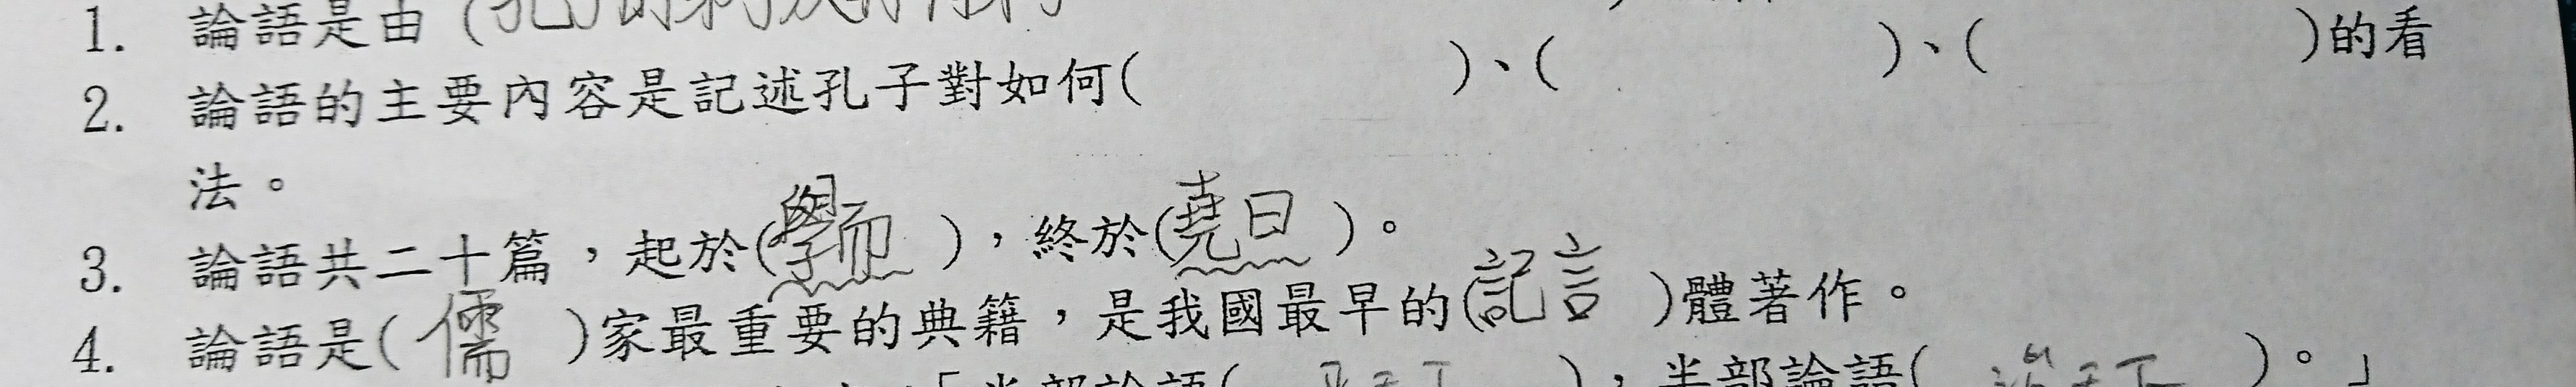 1. 論語是由(孔
2. 論語的主要內容是記述孔子對如何( )、( )、( )的看
法。
3. 論語共二十篇，起於(學而)，終於(堯曰)。
4. 論語是(儒)家最重要的典籍，是我國最早的(記言)體著作。
「半部論語( )，半部論語( )。」